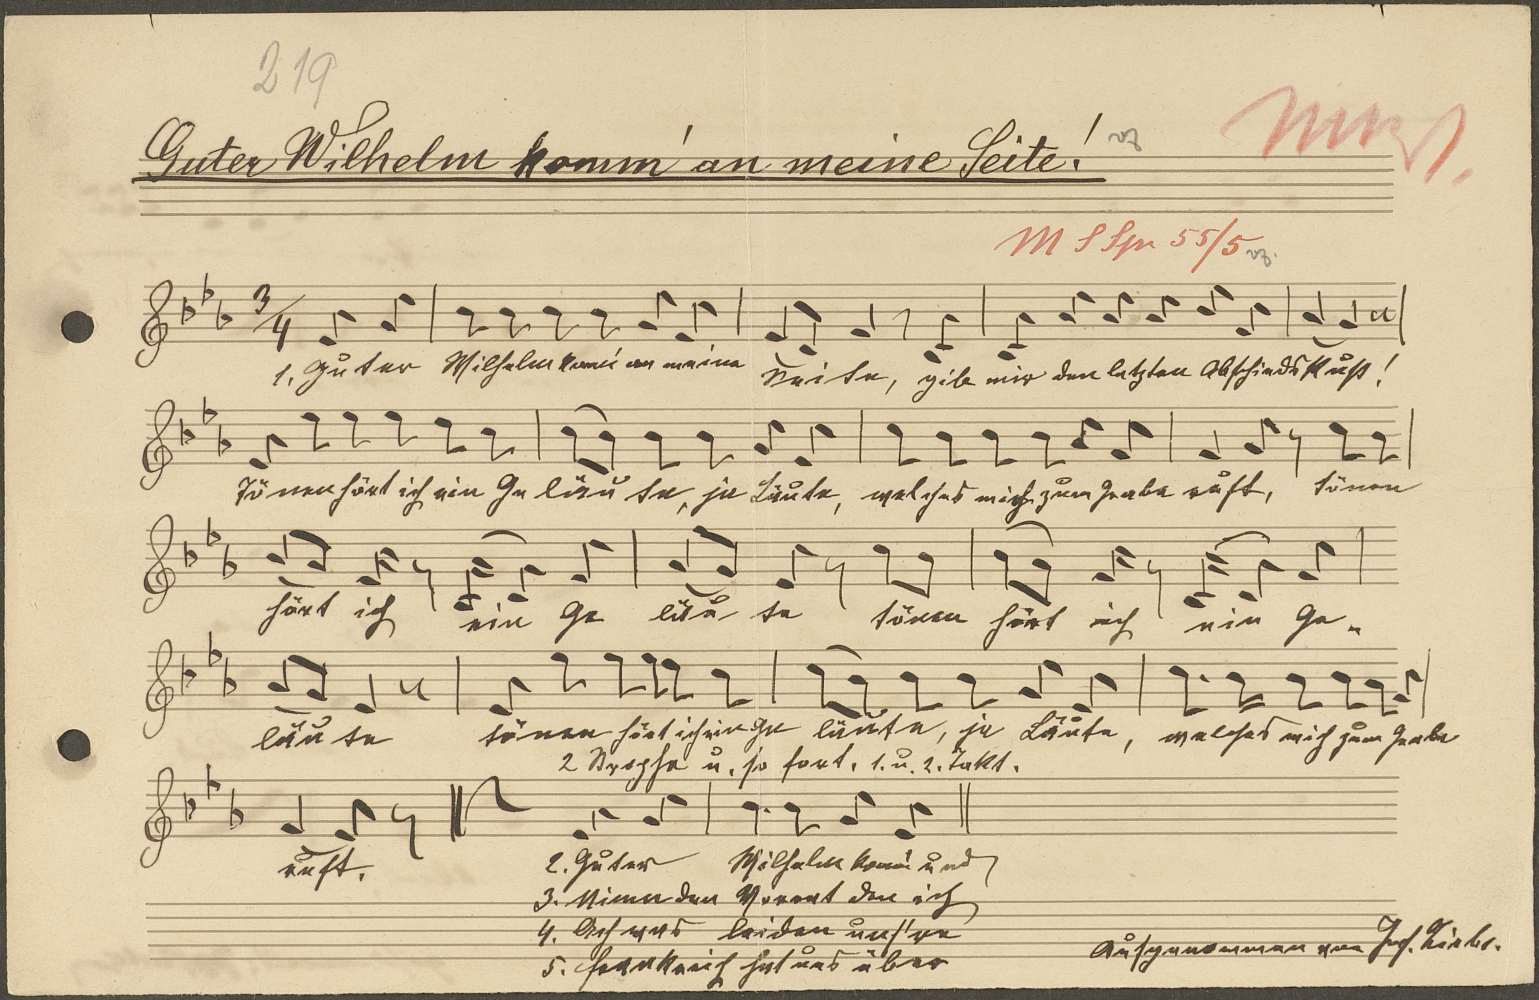 219
Guter Wilhelm komm' an meine Seite!
M S Spr 55/5
3/4
1. Guter Wilhelm kom̄ an meine Seite, gib mir den letzten Abschiedskuß!
Tönen hört ich ein Geläute, ja Läute, welches mich zum Grabe ruft, tönen
hört ich ein Ge läu te tönen hört ich ein Ge-
läu te tönen hört ich ein Ge läute, ja Läute, welches mich zum Grabe
2 Strophe u. so fort. 1. u. 2. Takt.
ruft.
2. Guter Wilhelm kom̄ und
3. Nimm den Vorrat den ich
4. Ach was leiden uns're
5. Frankreich hat uns über
Aufgenommen von Jos.